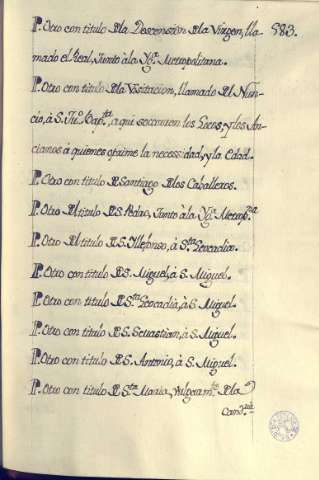 P. Otro con titulo de la Descension de la Virgen, lla- 583.
mado el Real, Junto à la Ygª. Metropolitana.
P. Otro con titulo de la Visitacion, llamado del Nun-
cio, à S. Juº. Bapta., aqui se corrijen los Locos, y los An-
cianos à quienes oprime la necessidad, y la Edad.
P. Otro con titulo de Santiago de los Caballeros.
P. Otro del titulo de S. Pedro, Junto à la Ygª. Metropna.
P. Otro del titulo de S. Illefonso, à Sta. Leocadia.
P. Otro con titulo de S. Miguel, à S. Miguel.
P. Otro con titulo de Sta. Leocadia, à S. Miguel.
P. Otro con titulo de S. Sebastian, à S. Miguel.
P. Otro con titulo de S. Antonio, à S. Miguel.
P. Otro con titulo de Sta. Maria, vulgarmte. de la